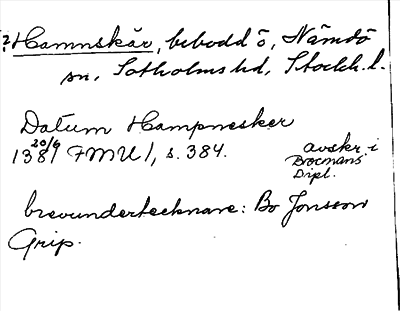 ? Hamnskär, bebodd ö, Nämdö
sn, Sotholms hd, Stockh. l.
Datum Hampnesker
20/6
1381 FMU 1, s. 384. avskr i
Brocmans
Dipl.
brevundertecknare: Bo Jonsson
Grip.